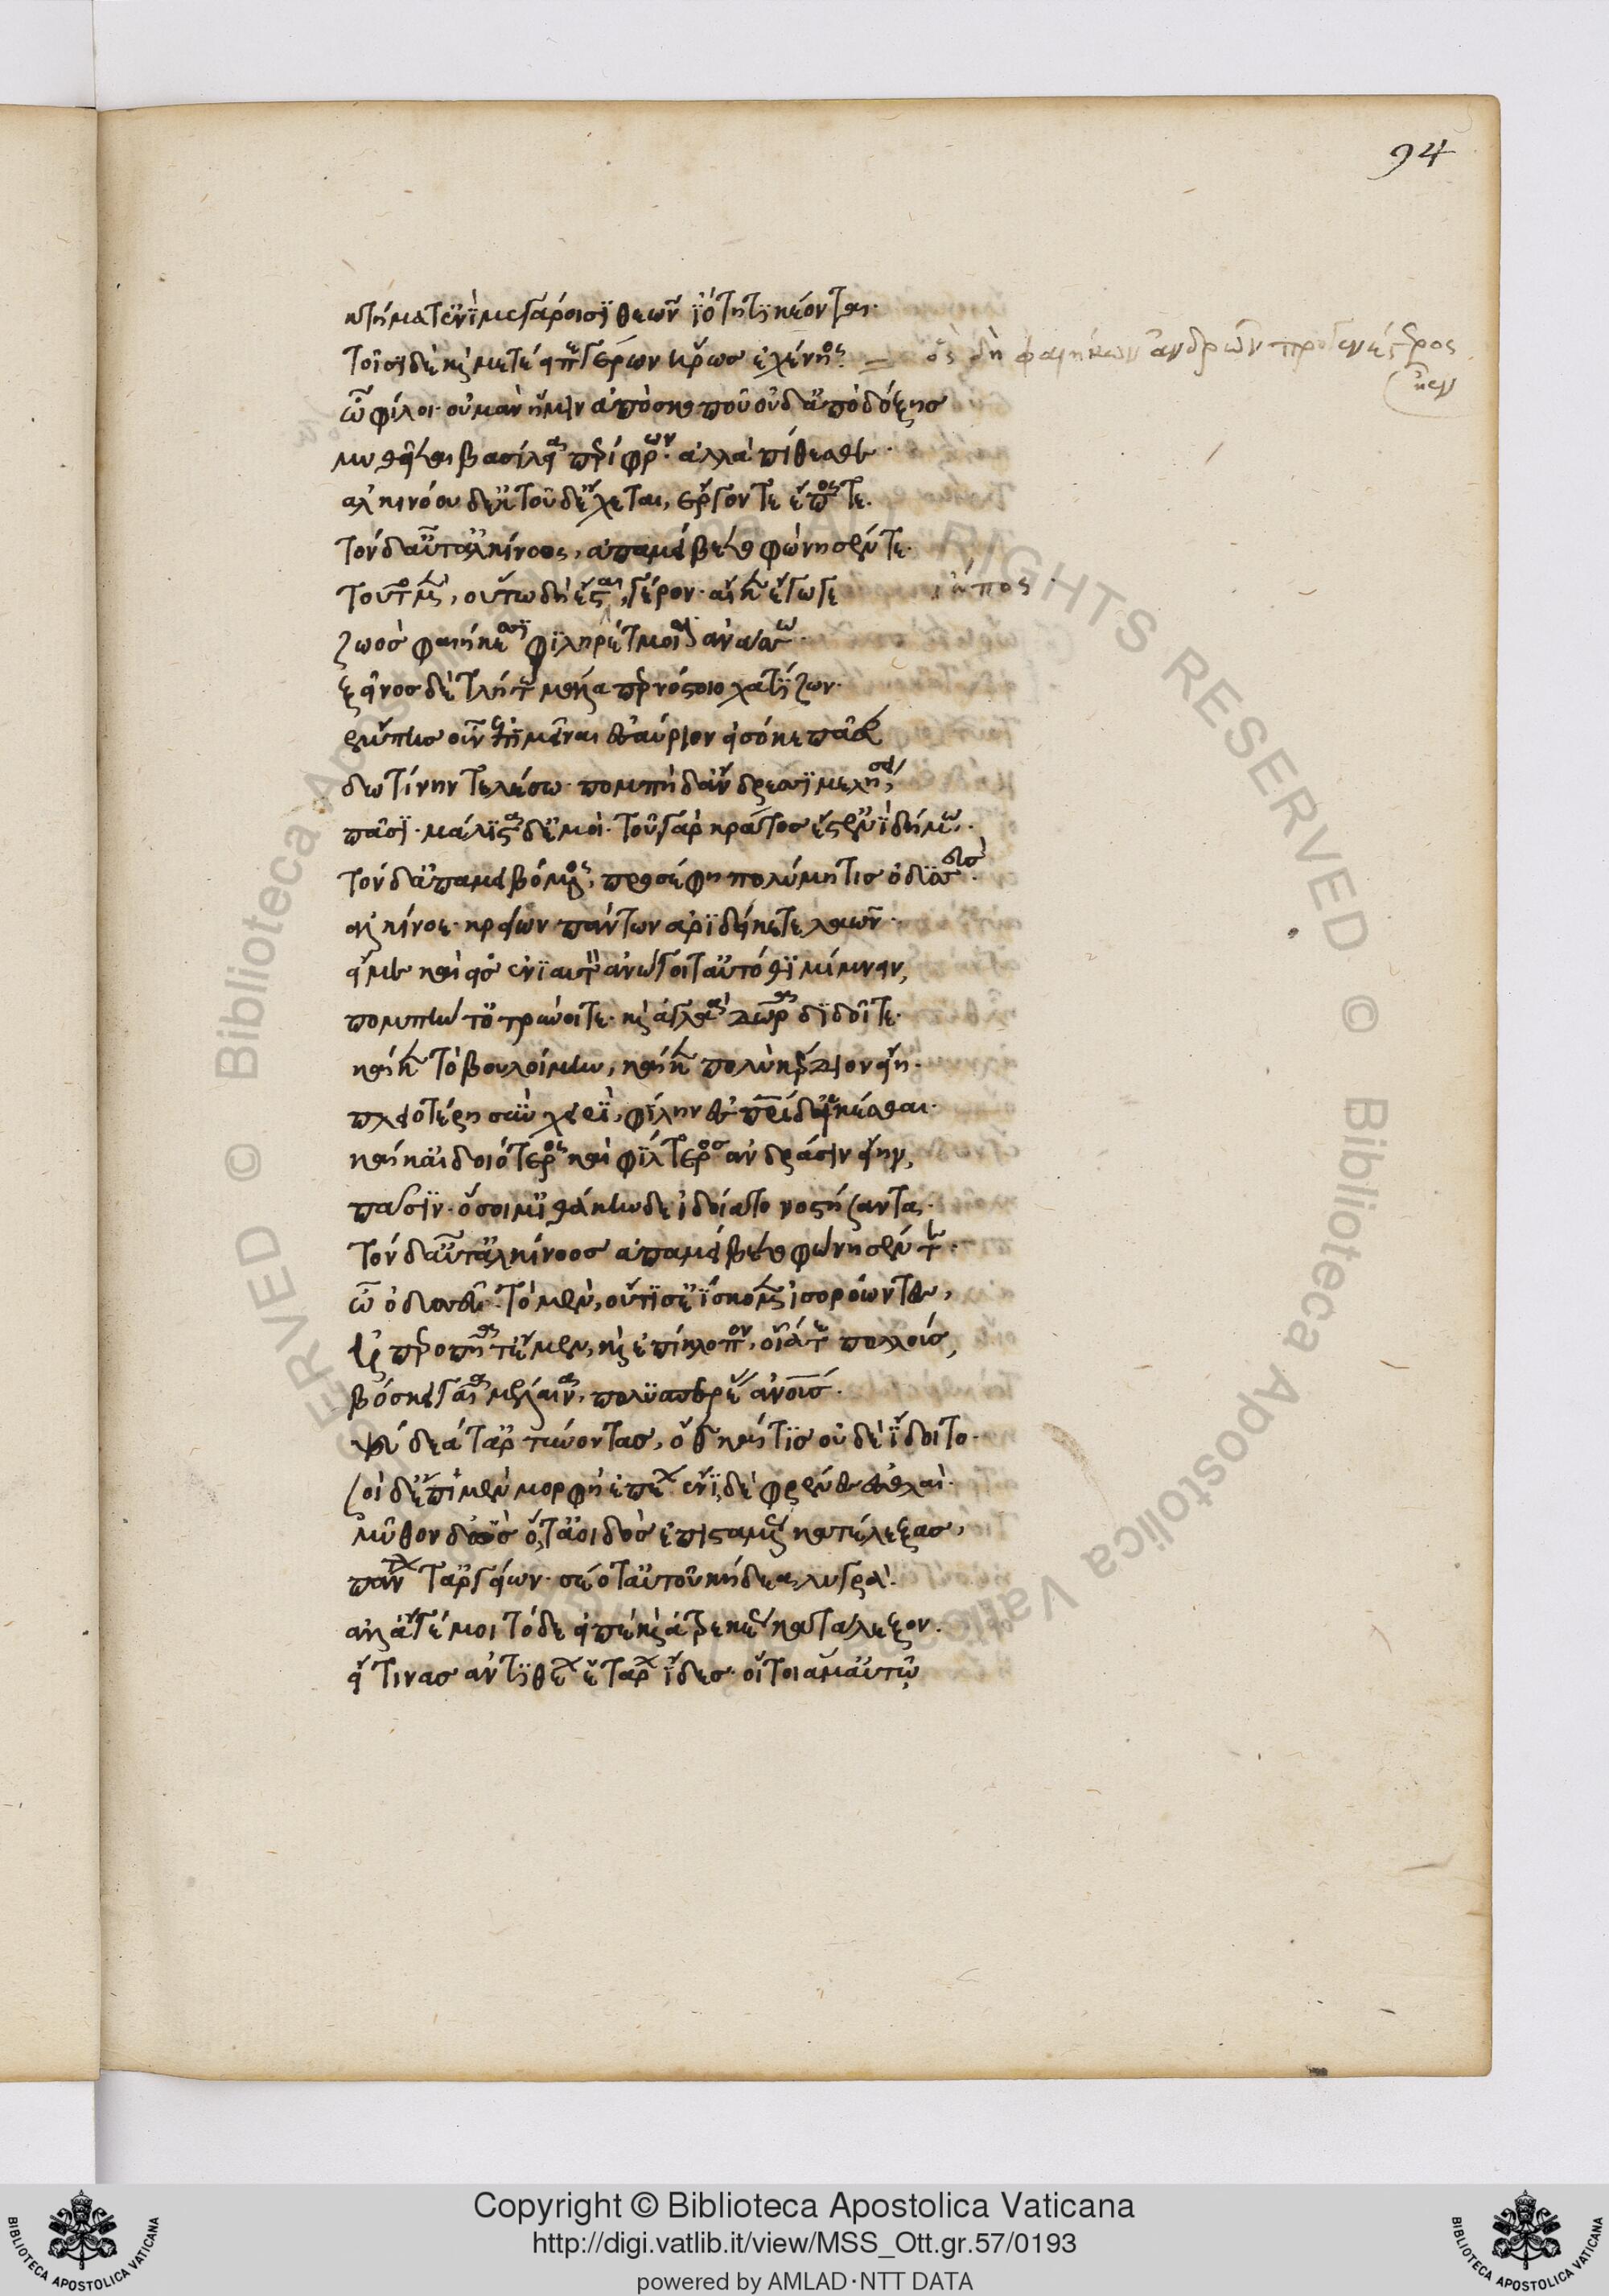 94
κτήματ' ἐνὶ μεγάροισι θεῶν ἰότητι κέονται.
τοῖσι δὲ καὶ μετέειπε γέρων ἥρως ἐχένηος. — ὃς δὴ φαιήκων ἀνδρῶν προγενέστερος ἦεν
ὦ φίλοι· οὐ μὰν ἥμιν ἀπὸ σκοποῦ οὐδ' ἀπὸ δόξης
μυθεῖται βασίλεια περίφρων· ἀλλὰ πίθεσθε·
ἀλκινόου δ' ἐκ τοῦδ' ἔχεται, ἔργον τε ἔπος τε.
τὸν δ' αὖτ' ἀλκίνοος, ἀπαμείβετο φώνησέν τε.
τοῦτο μὲν, οὕτω δὴ ἔσται, γέρον· αἴ κεν ἔγωγε
ζωὸς φαιήκεσσι φιληρέτμοισιν ἀνάσσω·
ξεῖνος δὲ τλήτω μάλα περ νόστοιο χατίζων·
ἔμπης οὖν ἐπιμεῖναι ἐς αὔριον εἰσόκε πᾶσαν
δωτίνην τελέσω· πομπὴ δ' ἄνδρεσσι μελήσει,
πᾶσι· μάλιστα δ' ἐμοί· τοῦ γὰρ κράτος ἔστ' ἐνὶ δήμω.
τὸν δ' ἀπαμειβόμενος, προσέφη πολύμητις ὀδυσσεύς.
ἀλκίνοε κρεῖων πάντων ἀριδείκετε λαῶν·
εἴ με καὶ εἰς ἐνιαυτὸν ἀνώγοιτ' αὐτόθι μίμνειν,
πομπήν τ' ὀτρύνοιτε· καὶ ἀγλαὰ δῶρα διδοῖτε·
καί κε τὸ βουλοίμην, καί κεν πολὺ κέρδιον εἴη·
πλειοτέρη σὺν χειρὶ, φίλην ἐς πατρίδ' ἱκέσθαι·
καί κ' αἰδοιότερος καὶ φίλτερος ἀνδράσιν εἴην,
πᾶσιν· ὅσοι μ' ἰθάκηνδε ἰδοίατο νοστήσαντα·
τὸν δ' αὖτ' ἀλκίνοος ἀπαμείβετο φώνησέν τε.
ὦ ὀδυσεῦ· τὸ μὲν, οὔτι σ' ἐΐσκομεν εἰσορόωντες,
ἠπεροπῆά τ' ἔμεν, καὶ ἐπίκλοπον, οἷά τε πολλοὺς,
βόσκει γαῖα μέλαινα, πολυσπερέας ἀνθρώπους.
ψεύδεά τ' ἀρτύνοντας, ὅθεν κέ τις οὐδὲ ἴδοιτο·
σοὶ δ' ἔπι μὲν μορφὴ ἐπέων ἔνι δὲ φρένες ἐσθλαί·
μῦθον δ' ὡς ὅτ' ἀοιδὸς ἐπισταμένως κατέλεξας,
πάντων τ' ἀργείων· σέο τ' αὐτοῦ κήδεα λυγρά.
ἀλλ' ἄγε μοι τόδε εἰπὲ καὶ ἀτρεκέως κατάλεξον.
εἴ τινας ἀντιθέων ἑτάρων ἴδες· οἵ τοι ἅμ' αὐτῷ
© Biblioteca Apostolica Vaticana ALL RIGHTS RESERVED © Biblioteca Apostolica Vaticana
BIBLIOTECA APOSTOLICA VATICANA
Copyright © Biblioteca Apostolica Vaticana
http://digi.vatlib.it/view/MSS_Ott.gr.57/0193
powered by AMLAD·NTT DATA
BIBLIOTECA APOSTOLICA VATICANA